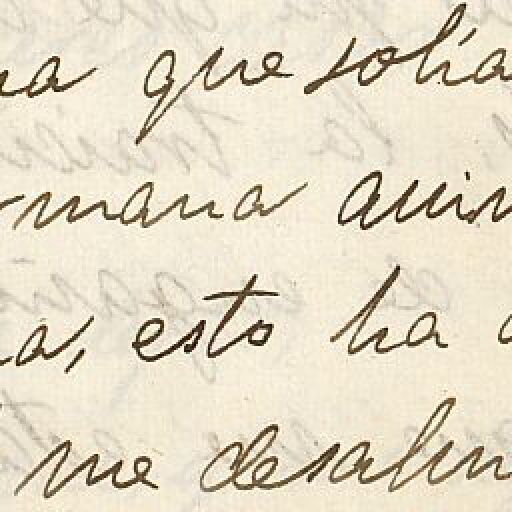 na que solía
rmana anim
na, esto ha
me desalen